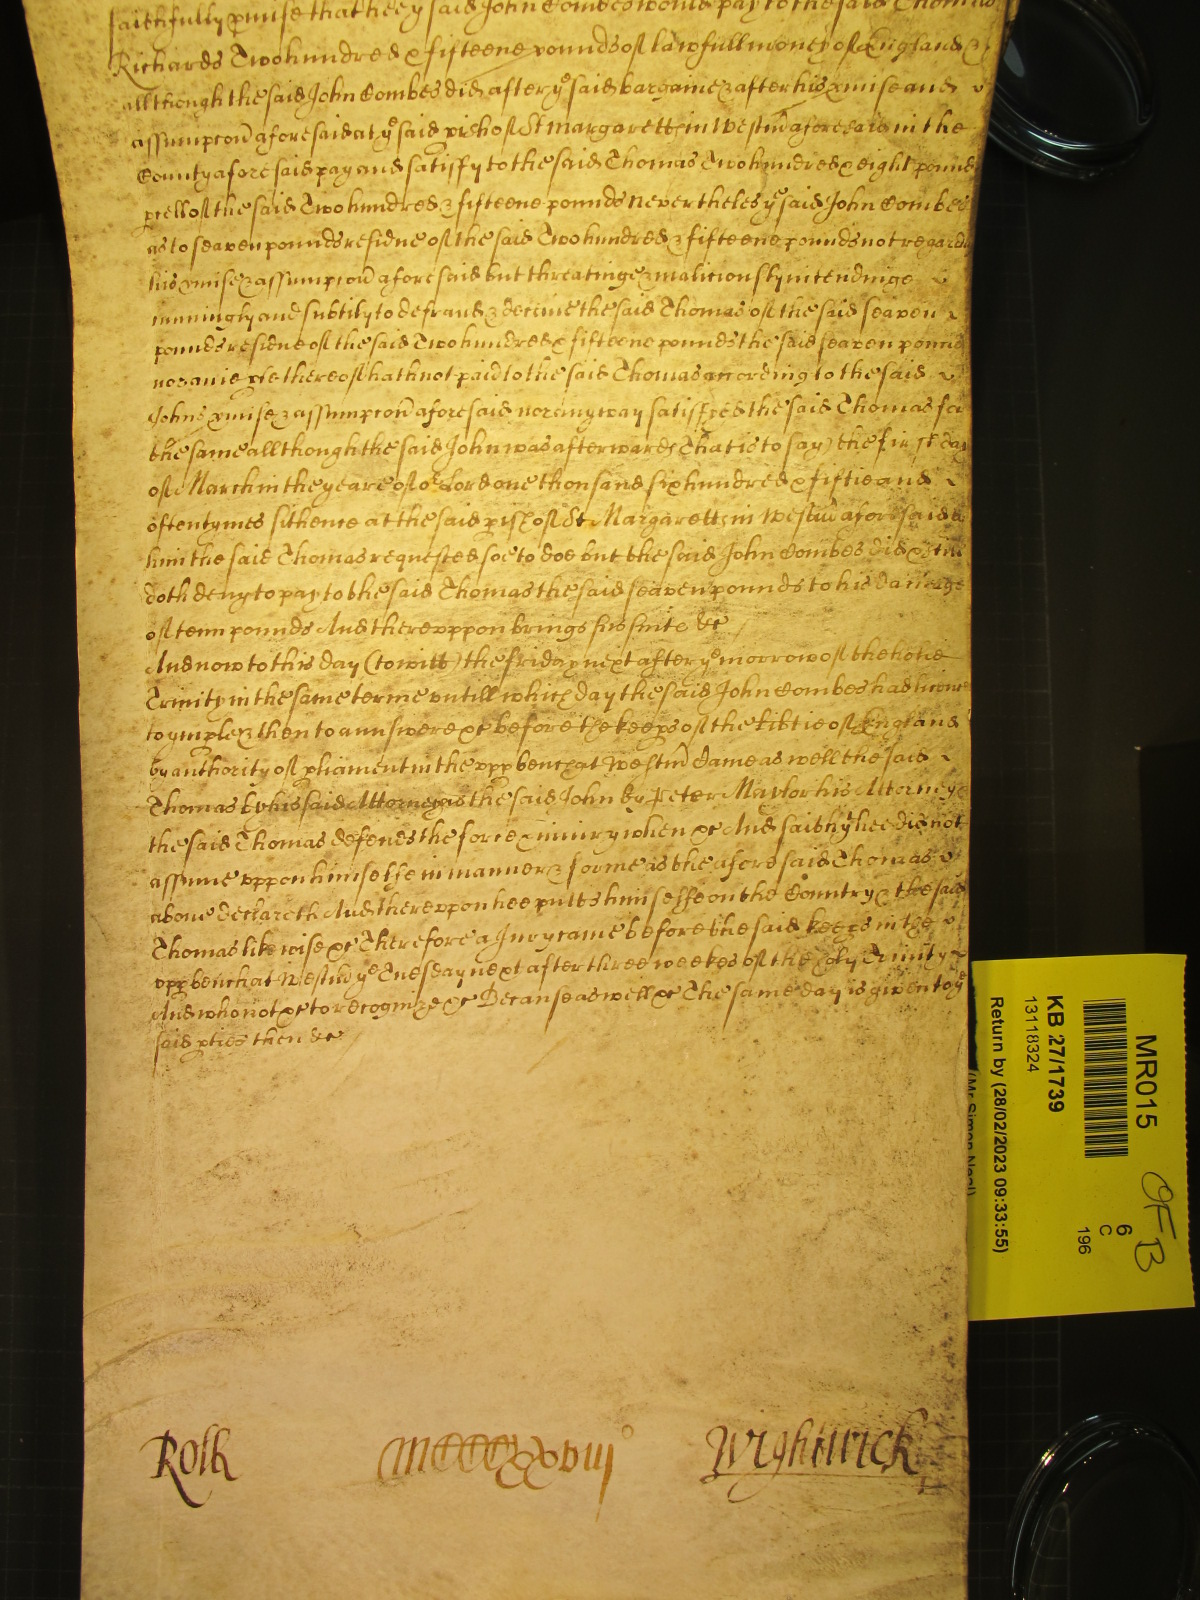 faithfully pmise that hee ye said John Combes would pay to the said Thomas
Richards Twohundred & fifteene pounds of lawfull money of England &
allthough the said John Combes did after ye said bargaine & after his pmise and
assumpcon aforesaid at ye said pish of St Margaretts in Westmr aforesaid in the
County aforesaid pay and satisfy to the said Thomas Twohundred & eight pounds
pcell of the said Twohundred & fifteene pounds nevertheles ye said John Combes
as to seaven pounds residue of the said Twohundred & fifteene pounds not regarding
his pmise & assumpcon aforesaid but threatinge & maliciously intendinge
cunningly and subtily to defraud & deceive the said Thomas of the said seaven
pounds residue of the said Twohundred & fifteene pounds the said seaven pounds
nor anie pte thereof hath not paid to the said Thomas according to the said
Johns pmise & assumpcon aforesaid nor any way satisfyed the said Thomas for
the same allthough the said John was afterwards (That is to say) the first day
of March in the yeare of or Lord one thousand six hundred & fiftie and
oftentymes sithence at the said pish of St Margaretts in Westmr aforesaid
him the said Thomas requested soe to doe but the said John Combes did & still
doth deny to pay to the said Thomas the said seaven pounds to his damage
of tenn pounds And thereuppon brings his suite &c
And now to this day (to witt) the friday next after ye morrow of the holie
Trinity in the same terme untill which day the said John Combes had licence
to imple & then to aunswere &c before the keeps of the libtie of England
by authority of pliament in the upp bench at Westmr Came as well the said
Thomas by his said Attorney as the said John by Peter Maylor his Attorney &
the said Thomas defends the force & iniury when &c And saith yt hee did not
assume uppon himselfe in manner & forme as the aforesaid Thomas
above declareth And thereuppon hee putts himselfe on the Country & the said
Thomas likewise &c Therefore a Jury came before the said keeps in the
upp bench at Westmr ye Tuesday next after three weekes of the holy Trinity &
And who not &c to recognize &c Because as well &c The same day is given to ye
said pties then &c
Rolk MCCCCXXVIIIo Wightwick
MR015
KB 27/1739
13118324
Return by (28/02/2023 09:33:55)
(Mr Simon Neal)
6
C
196
OFB